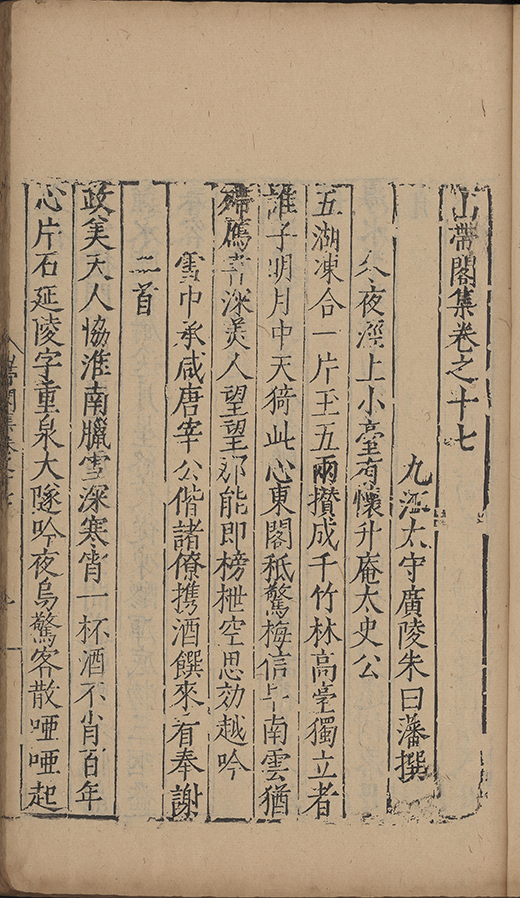 山帶閣集卷之十七
九江太守廣陵朱曰藩撰
冬夜涇上小臺有懷升庵太史公
五湖凍合一片玉五兩攅成千竹林高臺獨立者
誰子明月中天猗此心東閣秪驚梅信早南雲猶
滯鴈書深美人望望那能即榜枻空思効越吟
雪中承咸唐宰公偕諸僚携酒饌來有奉謝
二首
政美天人恊淮南臘雪深寒宵一杯酒不肖百年
心片石延陵字重泉大隧吟夜烏驚客散啞啞起